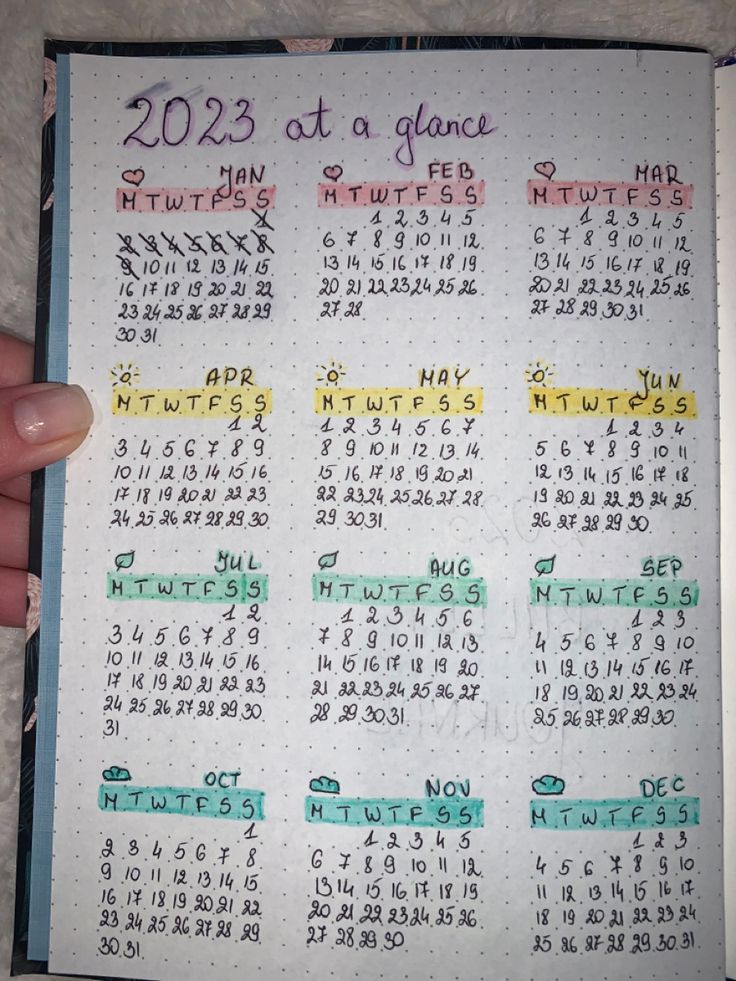 2023 at a glance
JAN
M T W T F S S
1
2 3 4 5 6 7 8
9 10 11 12 13 14 15
16 17 18 19 20 21 22
23 24 25 26 27 28 29
30 31
FEB
M T W T F S S
1 2 3 4 5
6 7 8 9 10 11 12
13 14 15 16 17 18 19
20 21 22 23 24 25 26
27 28
MAR
M T W T F S S
1 2 3 4 5
6 7 8 9 10 11 12
13 14 15 16 17 18 19
20 21 22 23 24 25 26
27 28 29 30 31
APR
M T W T F S S
1 2
3 4 5 6 7 8 9
10 11 12 13 14 15 16
17 18 19 20 21 22 23
24 25 26 27 28 29 30
MAY
M T W T F S S
1 2 3 4 5 6 7
8 9 10 11 12 13 14
15 16 17 18 19 20 21
22 23 24 25 26 27 28
29 30 31
JUN
M T W T F S S
1 2 3 4
5 6 7 8 9 10 11
12 13 14 15 16 17 18
19 20 21 22 23 24 25
26 27 28 29 30
JUL
M T W T F S S
1 2
3 4 5 6 7 8 9
10 11 12 13 14 15 16
17 18 19 20 21 22 23
24 25 26 27 28 29 30
31
AUG
M T W T F S S
1 2 3 4 5 6
7 8 9 10 11 12 13
14 15 16 17 18 19 20
21 22 23 24 25 26 27
28 29 30 31
SEP
M T W T F S S
1 2 3
4 5 6 7 8 9 10
11 12 13 14 15 16 17
18 19 20 21 22 23 24
25 26 27 28 29 30
OCT
M T W T F S S
1
2 3 4 5 6 7 8
9 10 11 12 13 14 15
16 17 18 19 20 21 22
23 24 25 26 27 28 29
30 31
NOV
M T W T F S S
1 2 3 4 5
6 7 8 9 10 11 12
13 14 15 16 17 18 19
20 21 22 23 24 25 26
27 28 29 30
DEC
M T W T F S S
1 2 3
4 5 6 7 8 9 10
11 12 13 14 15 16 17
18 19 20 21 22 23 24
25 26 27 28 29 30 31